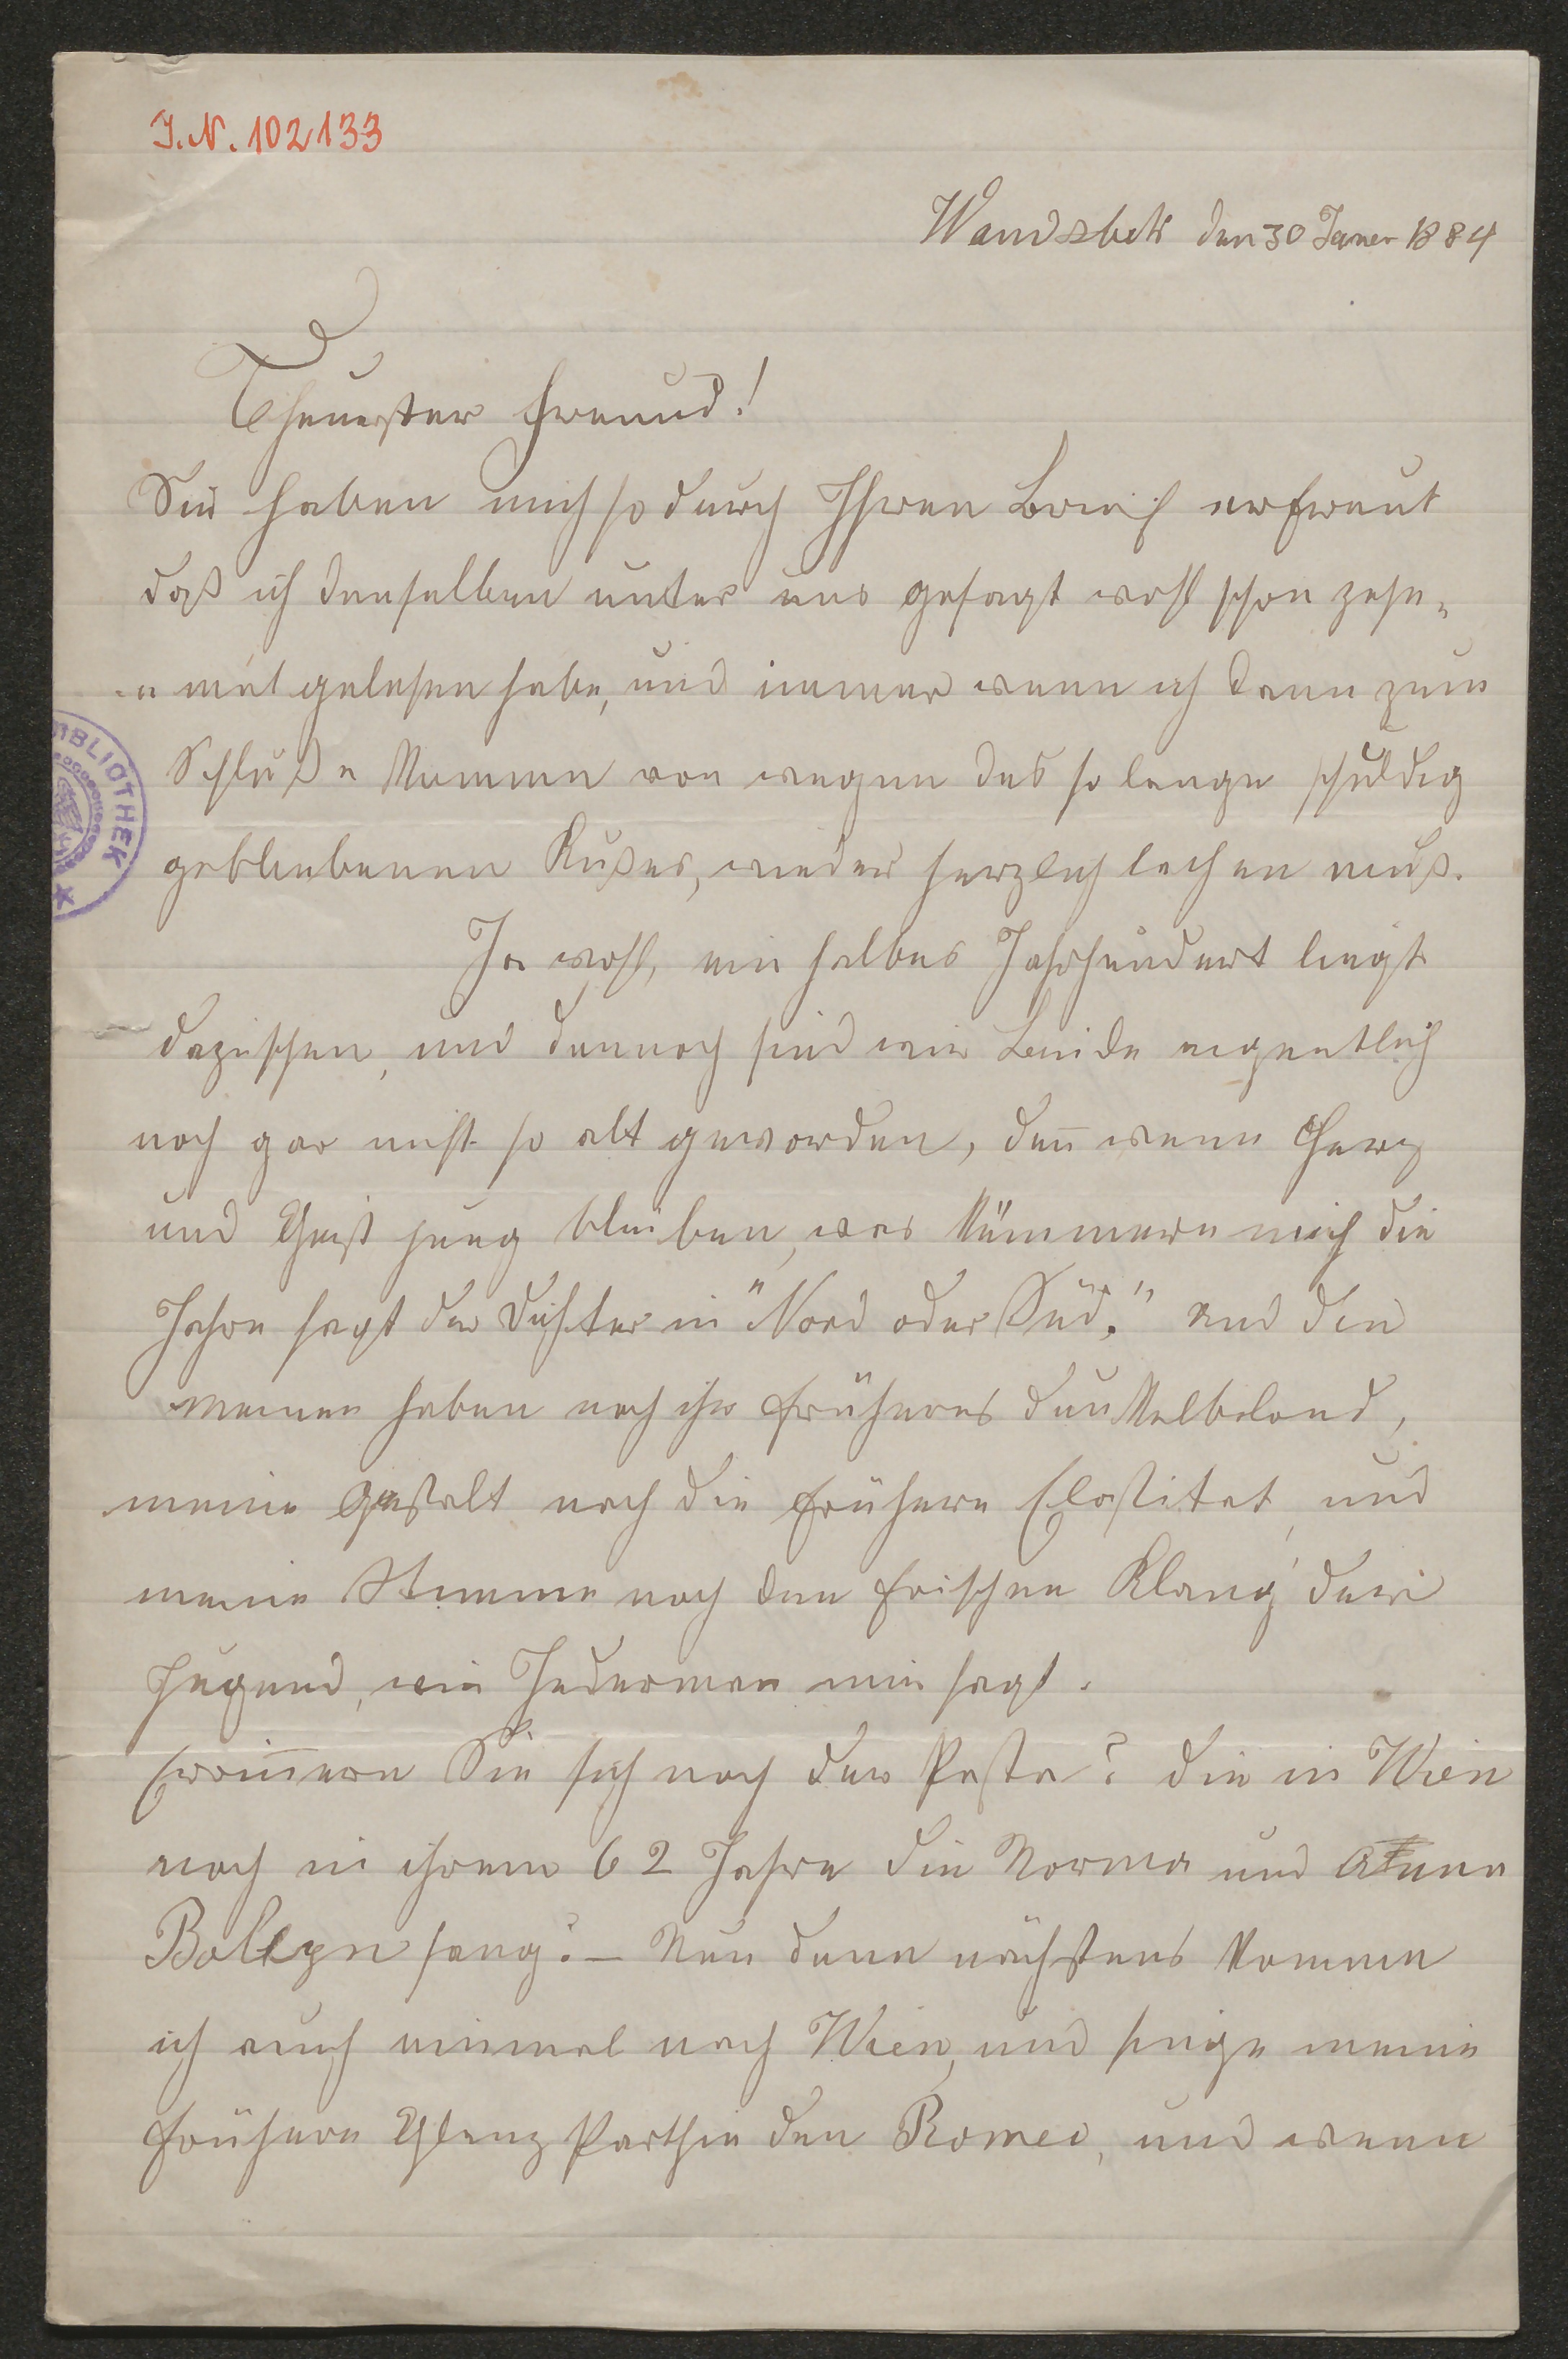 J. N. 102133
Wandsbek den 30 Janer 1884
Theuerster Freund!
Sie haben mich so durch Ihren Brief erfreut
daß ich denselben unter uns gesagt wohl schon zehn„
„mal gelesen habe, und immer wenn ich dann zum
Schluße komme von wegen des so lange schuldig
gebliebenen Kußes, wieder herzlich lachen muß.
Ja wohl, ein halbes Jahrhundert liegt
dazischen, und dennoch sind wir Beide eigentlich
noch gar nicht so alt geworden, deñ wenn Herz
und Geist jung bleiben, was kümmern mich die
Jahre sagt der Dichter in "Nord oder Süd." und die
meinen haben noch ihr früheres dunkelblond,
meine Gestalt noch die frühere Elastitet, und
meine Stimme noch den frischen Klang der
Jugend, wie Jederman mir sagt.
Eriñern Sie sich noch der Pasta? die in Wien
noch in ihrem 62 Jahre die Norma und Anna
Boleyn sang? – Nun dann nächstens komme
ich auch einmal nach Wien, und singe meine
frühere Glanz Parthie den Romeo, und wenn
BLIOTHEK